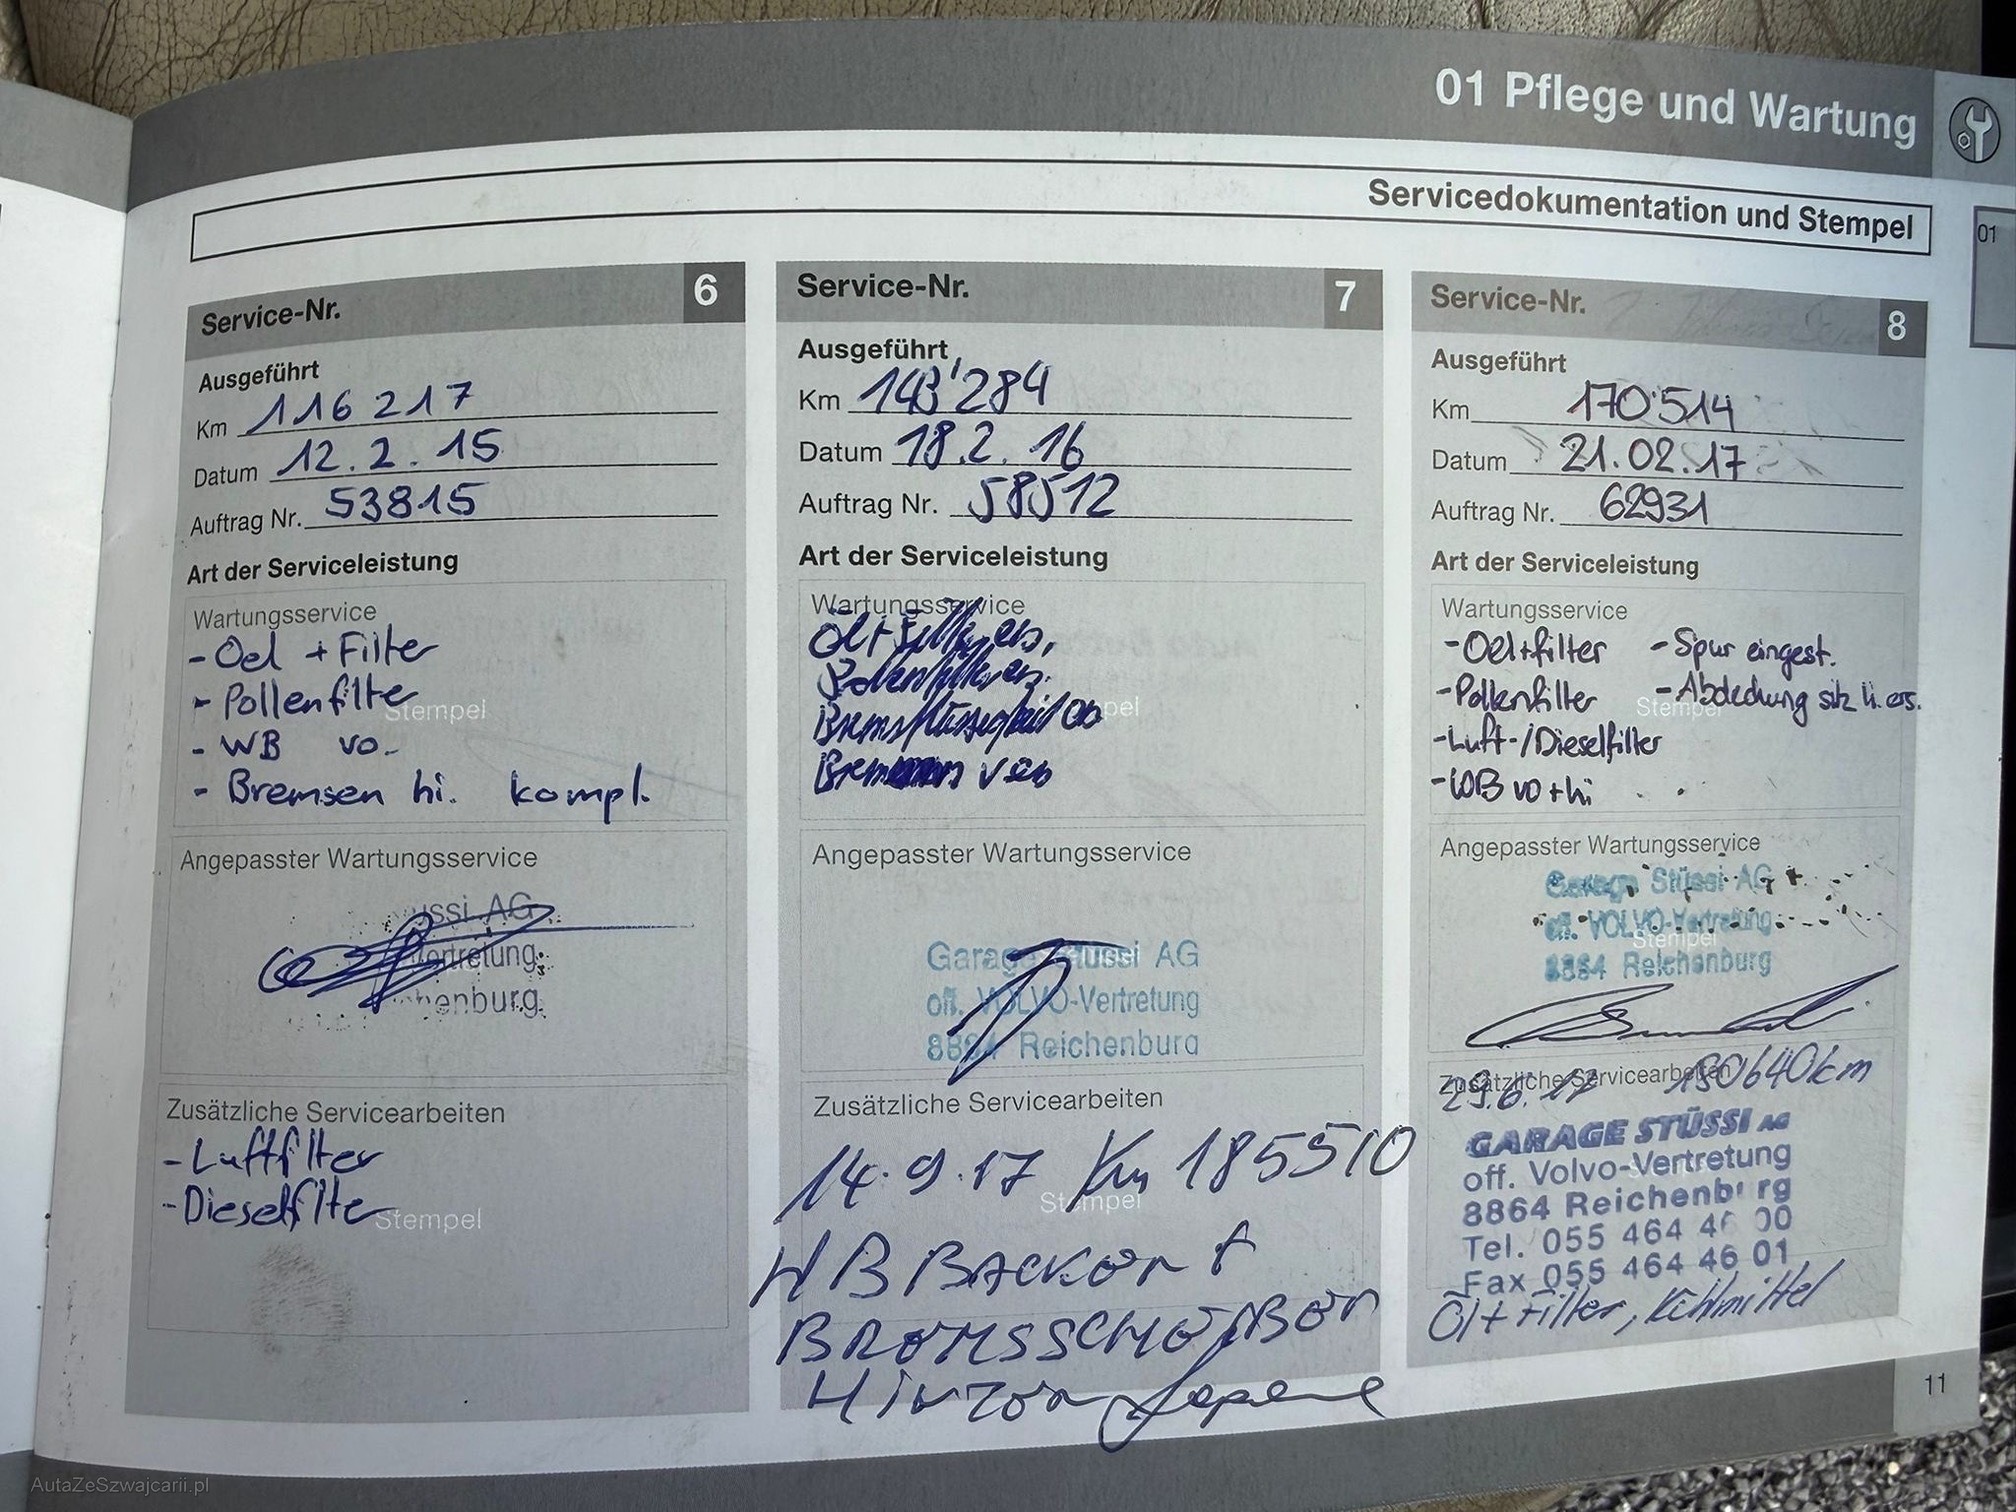 01 Pflege und Wartung
Servicedokumentation und Stempel
01
Service-Nr. 6
Ausgeführt
Km 116 217
Datum 12.2.15
Auftrag Nr. 53815
Art der Serviceleistung
Wartungsservice
- Oel + Filter
- Pollenfilter
Stempel
- WB vo.
- Bremsen hi. kompl.
Angepasster Wartungsservice
ussi AG
Vertretung
henburg
Zusätzliche Servicearbeiten
- Luftfilter
- Dieselfilter
Stempel
Service-Nr. 7
Ausgeführt
Km 143'284
Datum 18.2.16
Auftrag Nr. 58512
Art der Serviceleistung
Wartungsservice
Öl + Filter ers.
Pollenfilter ers.
Bremsflüssigkeit
Bremsen
Angepasster Wartungsservice
Garage Stüssi AG
off. VOLVO-Vertretung
8864 Reichenburg
Zusätzliche Servicearbeiten
14.9.17 Km 185510
Stempel
Service-Nr. 8
Ausgeführt
Km 170'514
Datum 21.02.17
Auftrag Nr. 62931
Art der Serviceleistung
Wartungsservice
- Oel+filter - Spur eingest.
- Pollenfilter - Abdeckung sitz li. ers.
Stempel
- Luft-/Dieselfilter
- WB vo + hi
Angepasster Wartungsservice
Garage Stüssi AG
off. VOLVO-Vertretung
Stempel
8864 Reichenburg
Zusätzliche Servicearbeiten
29.6.17 180640km
GARAGE STÜSSI AG
off. Volvo-Vertretung
8864 Reichenburg
Tel. 055 464 46 00
Fax 055 464 46 01
Öl + Filter, Kühlmittel
11
AutaZeSzwajcarii.pl